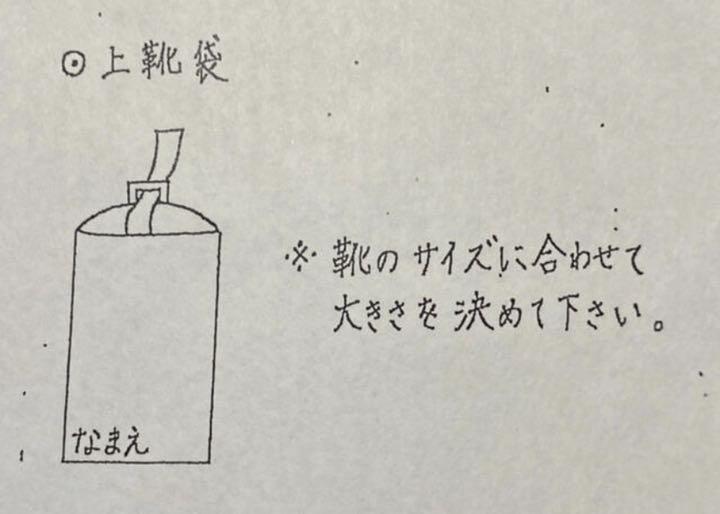 ⊙上靴袋
※靴のサイズに合わせて
大きさを決めて下さい。
なまえ